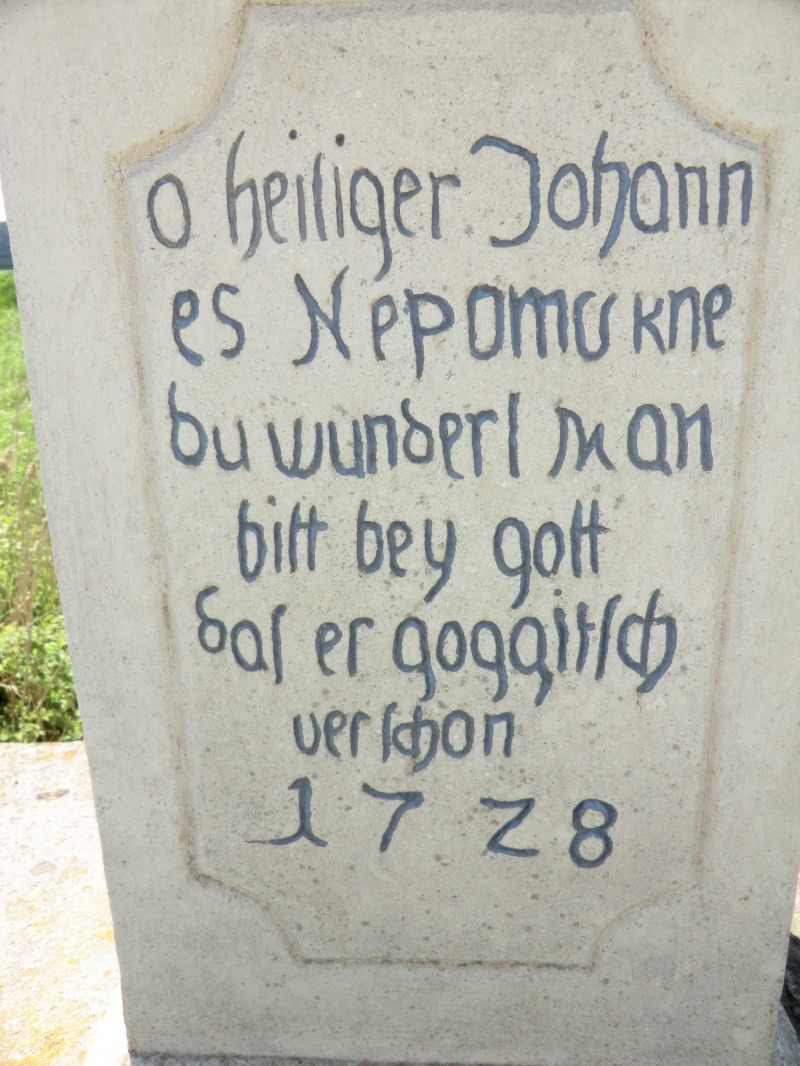 o heiliger Johann
es Nepomukne
du wunderſ man
bitt bey gott
daſ er goggitſch
verſchon
1728